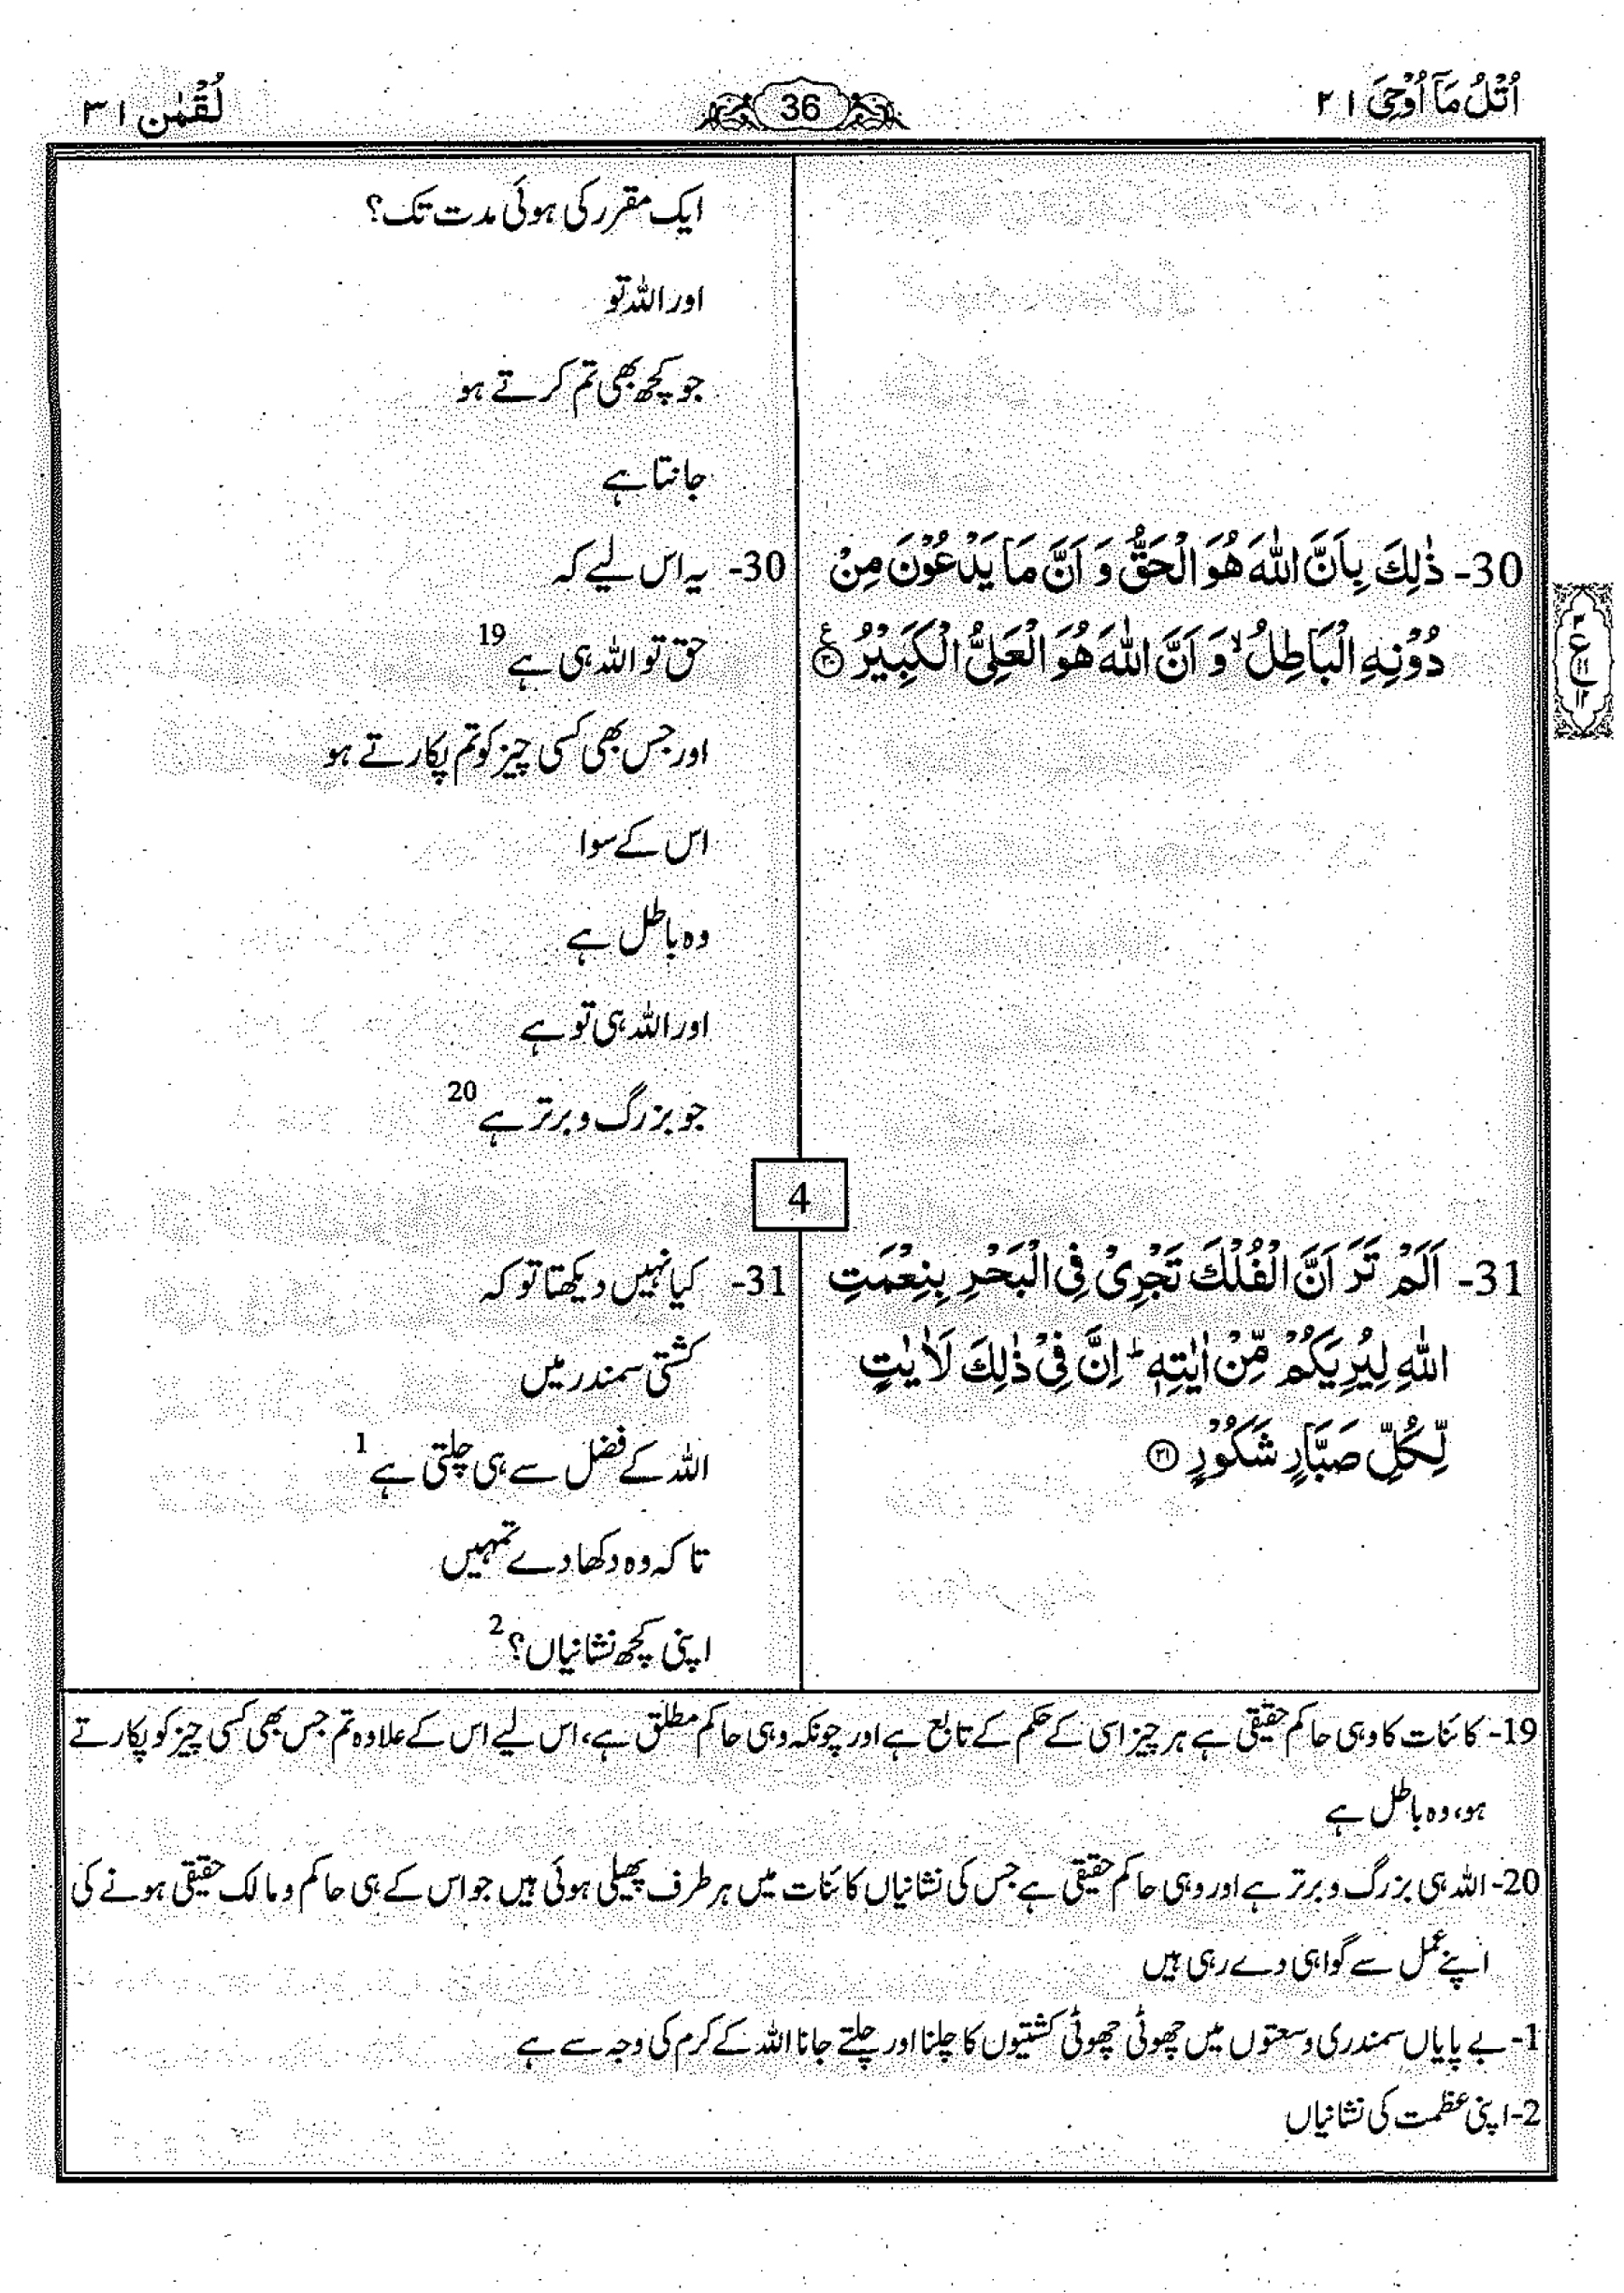 اُتْلُ مَآ اُوْحِیَ ۲۱
36
لُقْمٰن ۳۱
ایک مقرر کی ہوئی مدت تک؟
اور اللہ تو
جو کچھ بھی تم کرتے ہو
جانتا ہے
30- ذٰلِكَ بِاَنَّ اللّٰهَ هُوَ الْحَقُّ وَ اَنَّ مَا یَدْعُوْنَ مِنْ
دُوْنِهِ الْبَاطِلُ ۙ وَ اَنَّ اللّٰهَ هُوَ الْعَلِیُّ الْكَبِیْرُ ۠ ﴿۳۰﴾
30- یہ اس لیے کہ
حق تو اللہ ہی ہے 19
اور جس بھی کسی چیز کو تم پکارتے ہو
اس کے سوا
وہ باطل ہے
اور اللہ ہی تو ہے
جو بزرگ و برتر ہے 20
۳
ع
۱۱
۱۲
4
31- اَلَمْ تَرَ اَنَّ الْفُلْكَ تَجْرِیْ فِی الْبَحْرِ بِنِعْمَتِ
اللّٰهِ لِیُرِیَكُمْ مِّنْ اٰیٰتِهٖ ؕ اِنَّ فِیْ ذٰلِكَ لَاٰیٰتٍ
لِّكُلِّ صَبَّارٍ شَكُوْرٍ ﴿۳۱﴾
31- کیا نہیں دیکھتا تو کہ
کشتی سمندر میں
اللہ کے فضل سے ہی چلتی ہے 1
تا کہ وہ دکھا دے تمہیں
اپنی کچھ نشانیاں؟ 2
19- کائنات کا وہی حاکم حقیقی ہے ہر چیز اسی کے حکم کے تابع ہے اور چونکہ وہی حاکم مطلق ہے، اس لیے اس کے علاوہ تم جس بھی کسی چیز کو پکارتے
ہو، وہ باطل ہے
20- اللہ ہی بزرگ و برتر ہے اور وہی حاکم حقیقی ہے جس کی نشانیاں کائنات میں ہر طرف پھیلی ہوئی ہیں جو اس کے ہی حاکم و مالک حقیقی ہونے کی
اپنے عمل سے گواہی دے رہی ہیں
1- بے پایاں سمندری وسعتوں میں چھوٹی چھوٹی کشتیوں کا چلنا اور چلتے جانا اللہ کے کرم کی وجہ سے ہے
2- اپنی عظمت کی نشانیاں